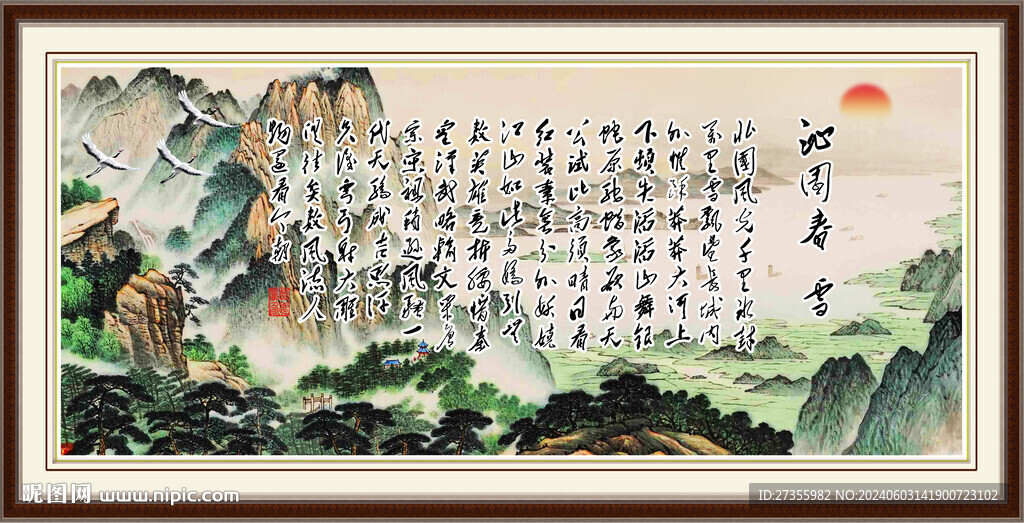 沁园春 雪
北國風光千里冰封
万里雪飘望长城内
外惟馀莽莽大河上
下顿失滔滔山舞银
蛇原驰蜡象欲与天
公试比高须晴日看
红装素裹分外妖娆
江山如此多娇引无
数英雄竞折腰惜秦
皇汉武略输文采唐
宗宋祖稍逊风骚一
代天骄成吉思汗
只识弯弓射大雕
俱往矣数风流人
物还看今朝
昵图网 www.nipic.com
ID:27355982 NO:20240603141900723102